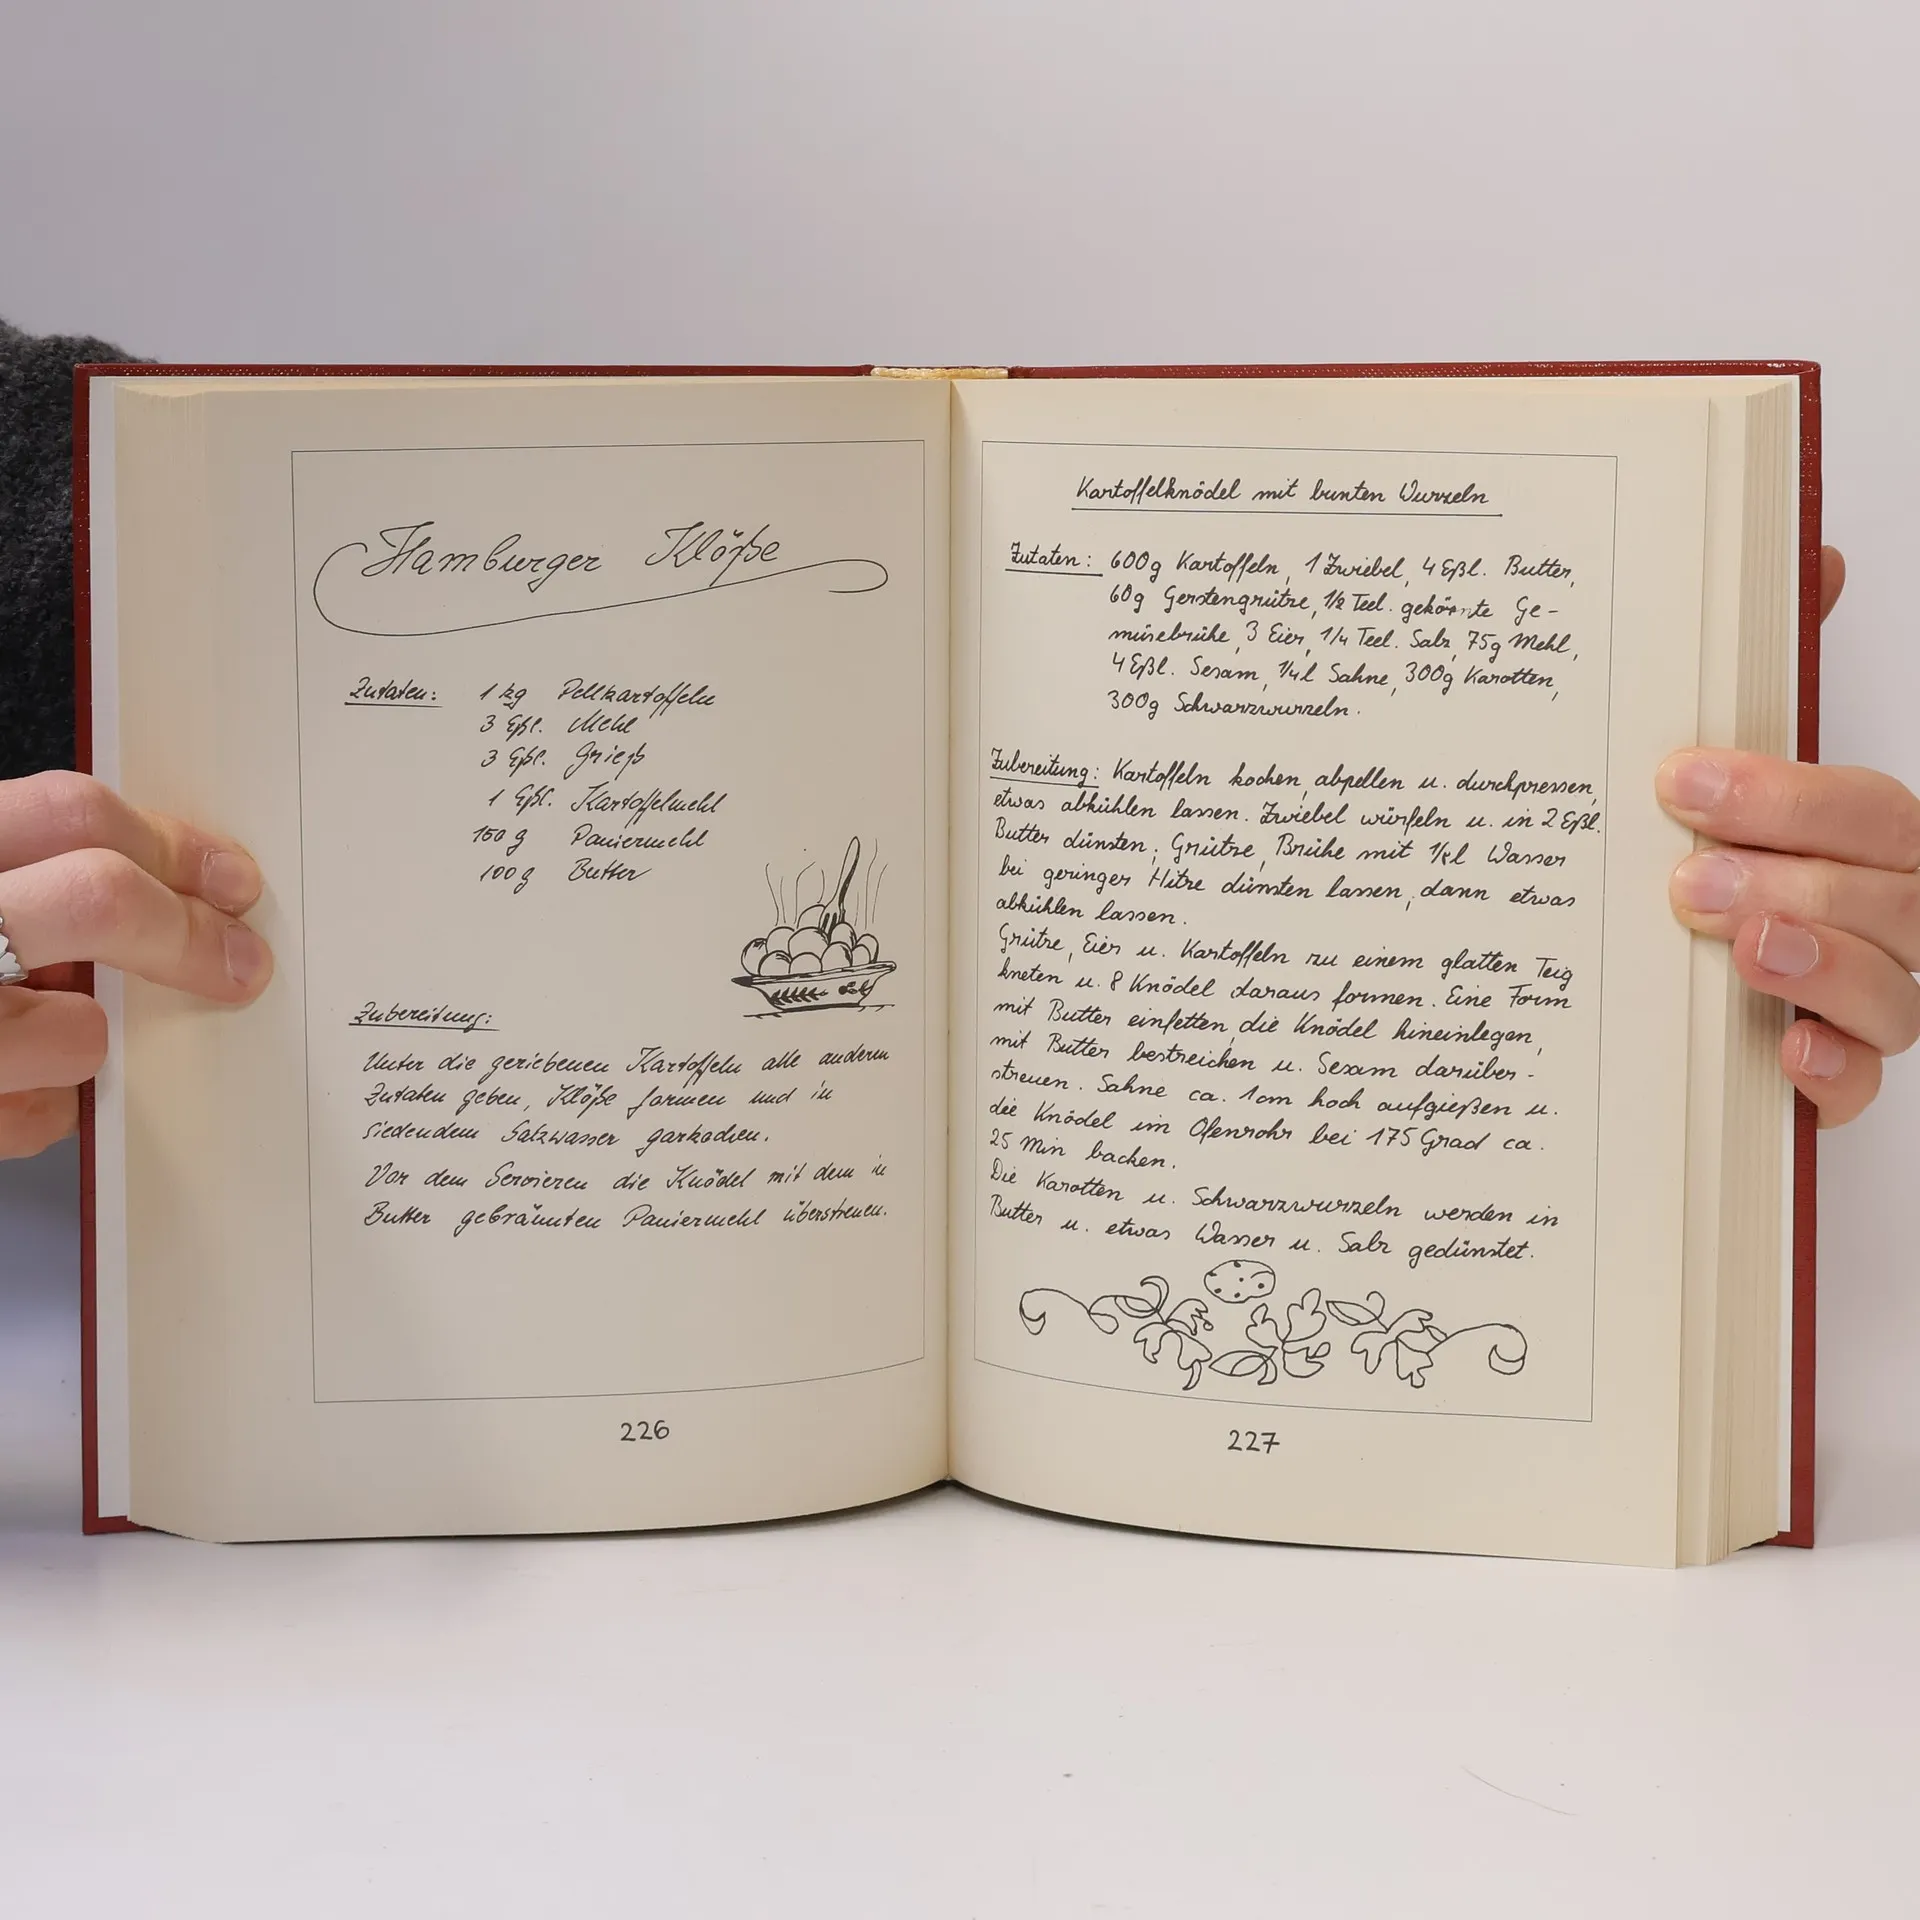 Hamburger Klöße
Zutaten: 1 kg Pellkartoffeln
3 Eßl. Mehl
3 Eßl. Grieß
1 Eßl. Kartoffelmehl
150 g Paniermehl
100 g Butter
Zubereitung:
Unter die geriebenen Kartoffeln alle anderen
Zutaten geben, Klöße formen und in
siedendem Salzwasser garkochen.
Vor dem Servieren die Knödel mit dem in
Butter gebräunten Paniermehl überstreuen.
226
Kartoffelknödel mit bunten Wurzeln
Zutaten: 600g Kartoffeln, 1 Zwiebel, 4 Eßl. Butter,
60g Gerstengrütze, 1/2 Teel. gekörnte Ge-
müsebrühe, 3 Eier, 1/4 Teel. Salz, 75g Mehl,
4 Eßl. Sesam, 1/4 l Sahne, 300g Karotten,
300g Schwarzwurzeln.
Zubereitung: Kartoffeln kochen, abpellen u. durchpressen,
etwas abkühlen lassen. Zwiebel würfeln u. in 2 Eßl.
Butter dünsten; Grütze, Brühe mit l Wasser
bei geringer Hitze dünsten lassen, dann etwas
abkühlen lassen.
Grütze, Eier u. Kartoffeln zu einem glatten Teig
kneten u. 8 Knödel daraus formen. Eine Form
mit Butter einfetten, die Knödel hineinlegen,
mit Butter bestreichen u. Sesam darüber-
streuen. Sahne ca. 1cm hoch aufgießen u.
die Knödel im Ofenrohr bei 175 Grad ca.
25 Min backen.
Die Karotten u. Schwarzwurzeln werden in
Butter u. etwas Wasser u. Salz gedünstet.
227